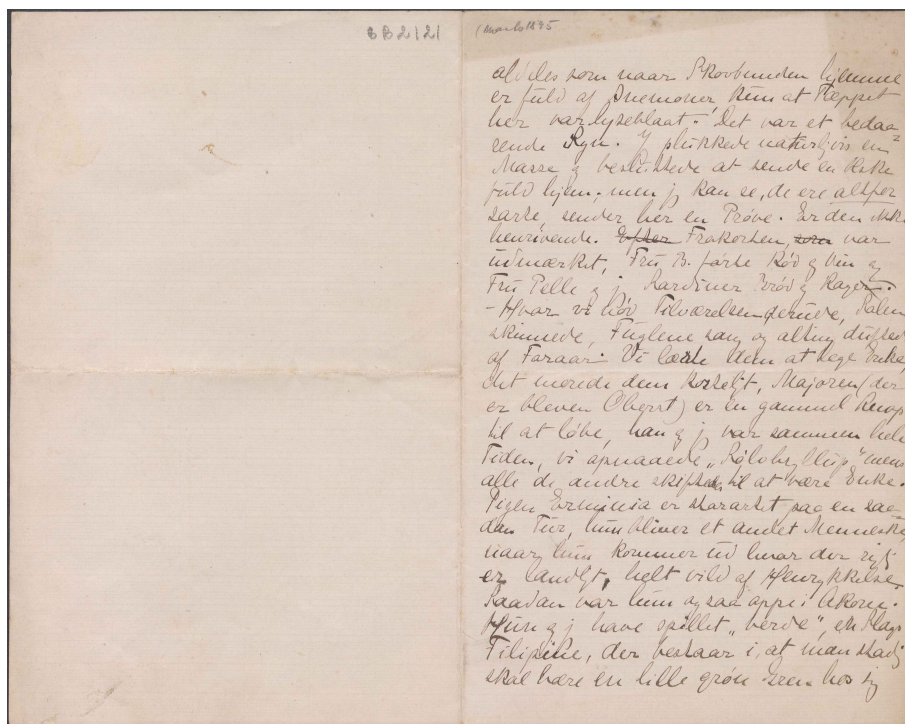 BB2121
(marts 1895
aldeles som naar Skovbunden hjemme
er fuld af Anemoner, kun at Tæppet
her var lyseblaat. Det var et bedaa=
rende Syn. Vi plukkede naturligvis en
Masse og besluttede at sende en Æske
fuld hjem; men jeg kan se, de ere altfor
sarte, sender her en Prøve. Er den ikke
henrivende. Efter Frokosten, som var
udmærket, Fru B. førte Kød og Vin og
Fru Pelle og j. Sardiner Brød og Kager.
- Hvor vi nød Tilværelsen derude, Solen
skinnede, Fuglene sang og alting duftede
af Foraar. Vi lærte dem at lege Enke,
det morede dem kosteligt, Majoren (der
er bleven Oberst) er en gammel Knop
til at løbe, han og j. var sammen hele
Tiden, vi opnaaede "Sølvbryllup", mens
alle de andre skiftedes til at være Enke.
Pigen Erminia er storartet paa en saa=
dan Tur, hun bliver et andet Menneske,
naar hun kommer ud hvor der rigtig
er landligt, helt vild af Henrykkelse.
Saadan var hun ogsaa oppe i
Hun og j. have spillet "verde", en Slags
Filipine, der bestaar i, at man stadig
skal bære en lille grøn Gren hos sig